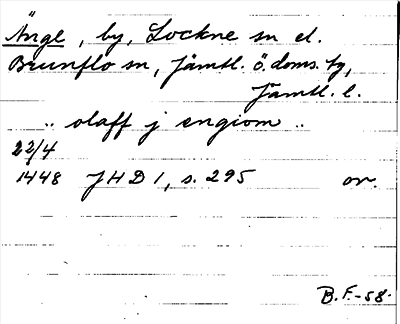 Änge, by, Lockne sn el.
Brunflo sn, Jämtl. ö. doms. tg,
Jämtl. l.
.. olaff j engiom ..
22/4
1448 JHD 1, s. 295 or.
B.F.-58.